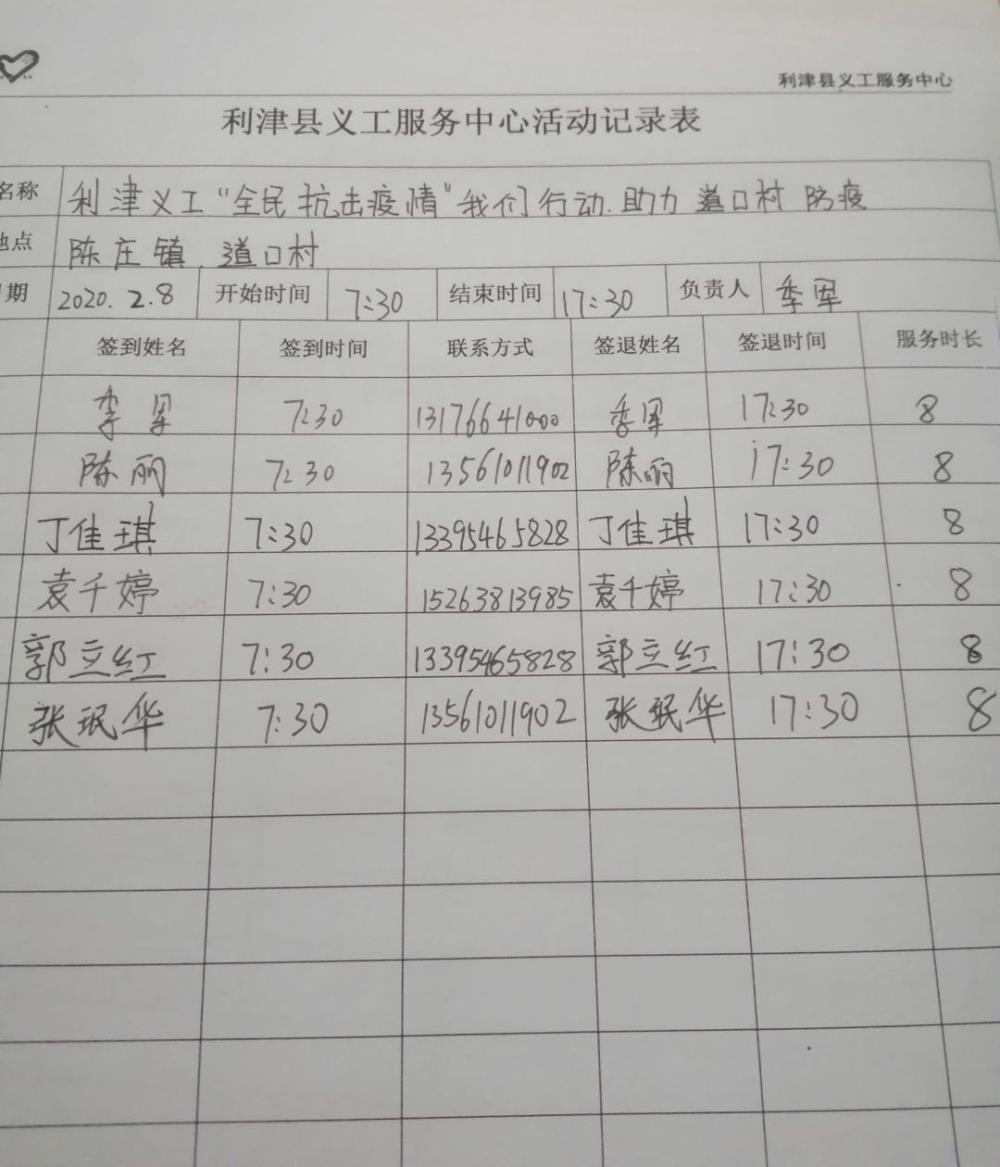 利津县义工服务中心
利津县义工服务中心活动记录表
名称 利津义工“全民抗击疫情”我们行动.助力 道口村 防疫
地点 陈庄镇.道口村
期 2020.2.8 开始时间 7:30 结束时间 17:30 负责人 季军
签到姓名 签到时间 联系方式 签退姓名 签退时间 服务时长
季军 7:30 13176641000 季军 17:30 8
陈丽 7:30 13561011902 陈丽 17:30 8
丁佳琪 7:30 13395465828 丁佳琪 17:30 8
袁千婷 7:30 15263813985 袁千婷 17:30 8
郭立红 7:30 13395465828 郭立红 17:30 8
张珉华 7:30 13561011902 张珉华 17:30 8